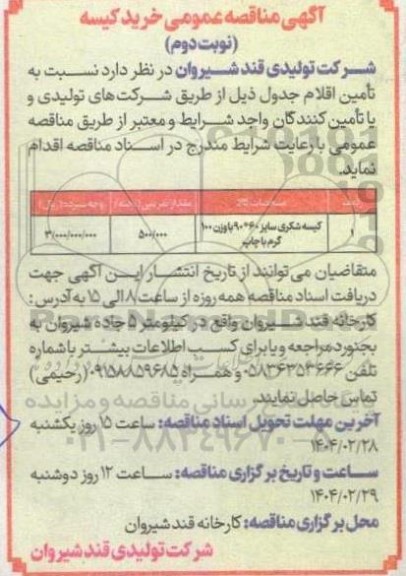 آگهی مناقصه عمومی خرید کیسه
(نوبت دوم)
شرکت تولیدی قند شیروان در نظر دارد نسبت به
تأمین اقلام جدول ذیل از طریق شرکت‌های تولیدی و
یا تأمین کنندگان واجد شرایط و معتبر از طریق مناقصه
عمومی با رعایت شرایط مندرج در اسناد مناقصه اقدام
نماید.
ردیف مشخصات کالا مقدار تقریبی (تخته) وجه سپرده (ریال)
۱ کیسه شکری سایز ۶۰*۹۰ با وزن ۱۰۰ گرم با چاپ ۵۰۰/۰۰۰ ۳/۰۰۰/۰۰۰/۰۰۰
متقاضیان می‌توانند از تاریخ انتشار این آگهی جهت
دریافت اسناد مناقصه همه روزه از ساعت ۸ الی ۱۵ به آدرس:
کارخانه قند شیروان واقع در کیلومتر ۵ جاده شیروان به
بجنورد مراجعه و یا برای کسب اطلاعات بیشتر با شماره
تلفن ۰۵۸۳۶۳۵۳۶۶۶ و همراه ۰۹۱۵۸۸۵۹۶۸۵ (رحیمی)
تماس حاصل نمایند.
آخرین مهلت تحویل اسناد مناقصه: ساعت ۱۵ روز یکشنبه
۱۴۰۴/۰۲/۲۸
ساعت و تاریخ برگزاری مناقصه: ساعت ۱۲ روز دوشنبه
۱۴۰۴/۰۲/۲۹
محل برگزاری مناقصه: کارخانه قند شیروان
شرکت تولیدی قند شیروان
ParsNamadData
پایگاه اطلاع رسانی مناقصه و مزایده
۰۲۱-۸۸۳۴۹۶۷۰